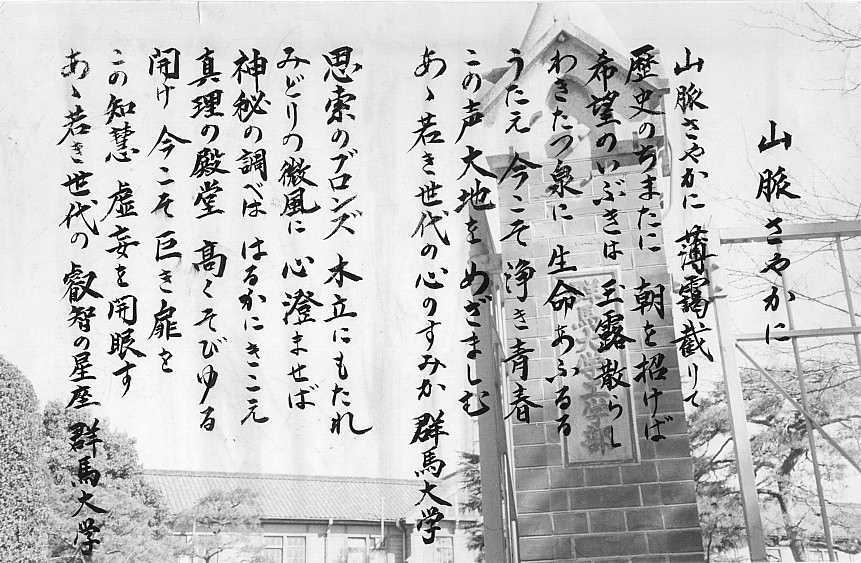 山脈さやかに
山脈さやかに 薄靄截りて
歴史のちまたに 朝を招けば
希望のいぶきは 玉露散らし
わきたつ泉に 生命あふるる
うたえ 今こそ 浄き青春
この声 大地をめざましむ
あゝ若き世代の心のすみか 群馬大学
思索のブロンズ 木立にもたれ
みどりの微風に 心澄ませば
神秘の調べは はるかにきこえ
真理の殿堂 高くそびゆる
開け 今こそ 巨き扉を
この知慧 虚妄を開眼す
あゝ若き世代の 叡智の星座 群馬大学
群馬大学工学部